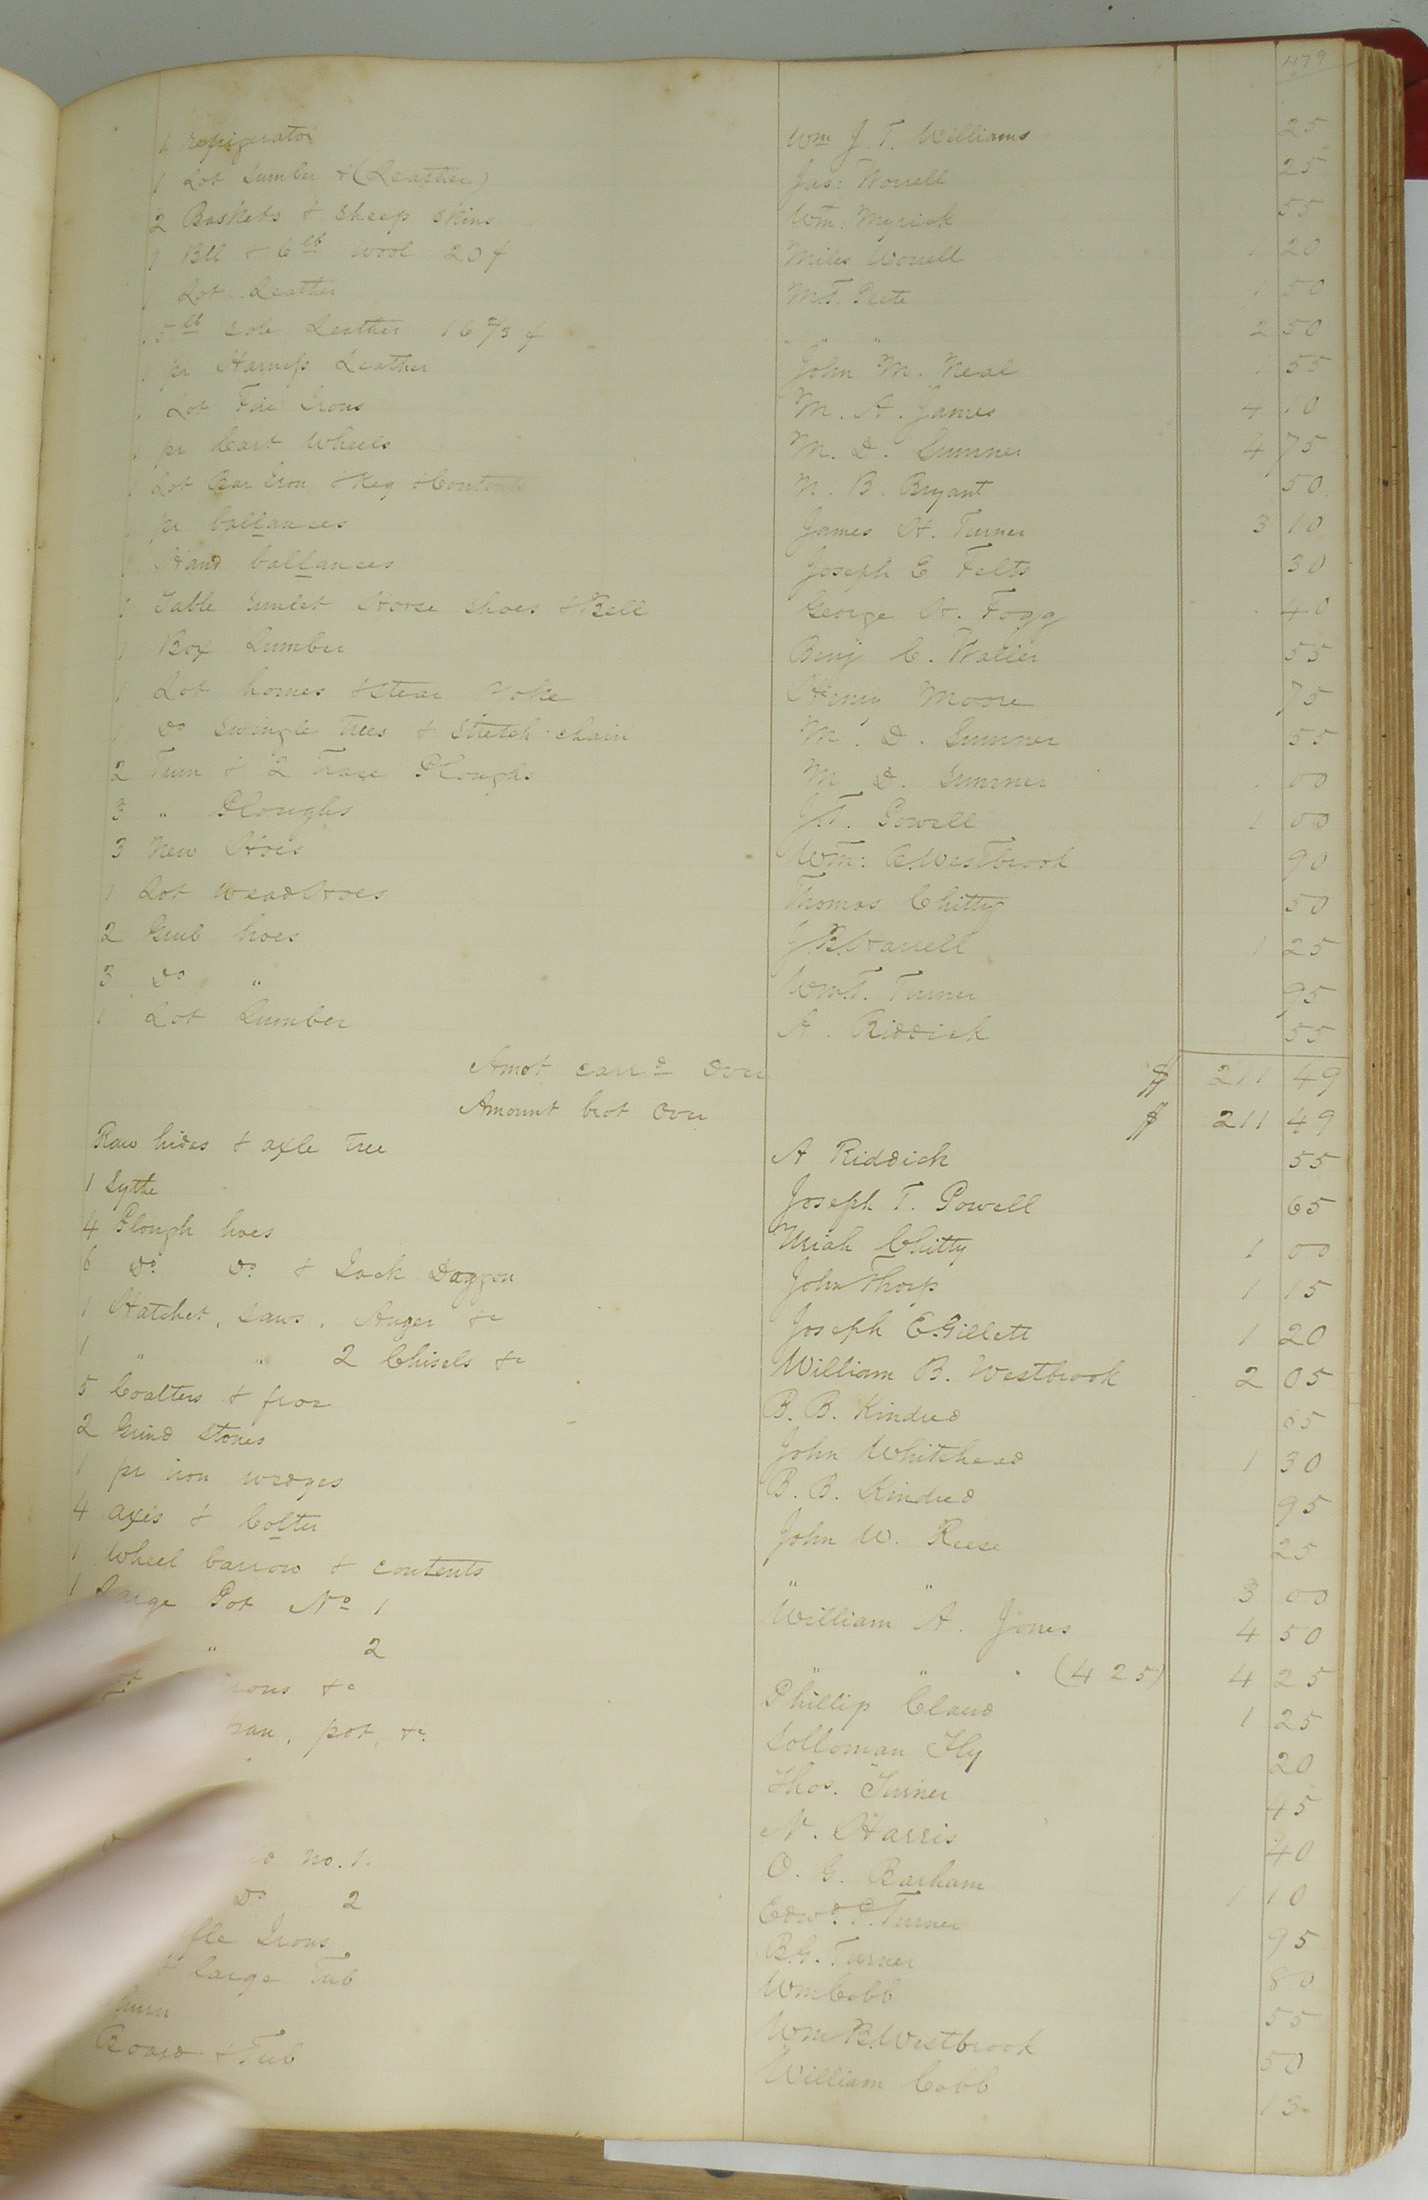 479
1 refrigerator Wm J. T. Williams 25
1 Lot Lumber & (Leather) Jas: Worrell 25
2 Baskets & Sheep Skins Wm. Myrick 55
1 Bll & 6 lb Wool 20 ¢ Miles Worrell 1 20
1 Lot Leather 1 50
15 lb Sole Leather 16 2/3 ¢ " " 2 50
1 pr Harness Leather John M. Neal 1 55
1 Lot Fire Irons M. A. James 4 10
1 pr Cart Wheels M. D. Sumner 4 75
1 Lot Bar Iron & Keg & Contents N. B. Bryant 50
1 pr ballances James H. Turner 3 10
1 Hand ballances Joseph E Felts 30
1 Table Horse Shoes & Bell George H. Fogg 40
1 Box Lumber Benj C. Waller 55
1 Lot homes & Stear Yoke Henry Moore 75
1 Do Swingle trees & Stretch chain M. D. Sumner 55
2 Turn & 2 Trace Ploughs M D. Sumner 1 00
3 " Ploughs J. T. Powell 1 00
3 New Hoes Wm: B. Westbrook 90
1 Lot Wead Hoes Thomas Chitty 50
2 Grub hoes J. B. Harrell 1 25
3 Do " Wm. T. Turner 95
1 Lot Lumber A. Riddick 55
Amot carrd Over $ 211 49
Amount brot Over $ 211 49
Raw hides & axle tree A Riddick 55
1 Sythe Joseph T. Powell 65
4 Plough hoes Uriah Chitty 1 00
6 Do. Do. & Jack Daggon John Thorp 1 15
1 Hatchet, Saws, Auger &c Joseph E. Gillett 1 20
1 " " 2 Chisels &c William B. Westbrook 2 05
5 Coalters & froe B. B. Kindred 65
2 Grind Stones John Whitehead 1 30
1 pr iron wedges B. B. Kindred 95
4 axis & Colter John W. Reese 25
1 Wheel barrow & contents " " 3 00
1 Large Pot No 1 William A. Jones 4 50
" 2 " " (4 25) 4 25
&c Phillip Claud 1 25
pan, pot, &c. Solloman Fly 20
Thos. Turner 45
N. Harris 40
No. 1. O. G. Barham 1 10
Do 2 Edwd. P. Turner 95
Irons B. G. Turner 80
& large Tub Wm Cobb 55
Wm B. Westbrook 50
Board & Tub William Cobb 15